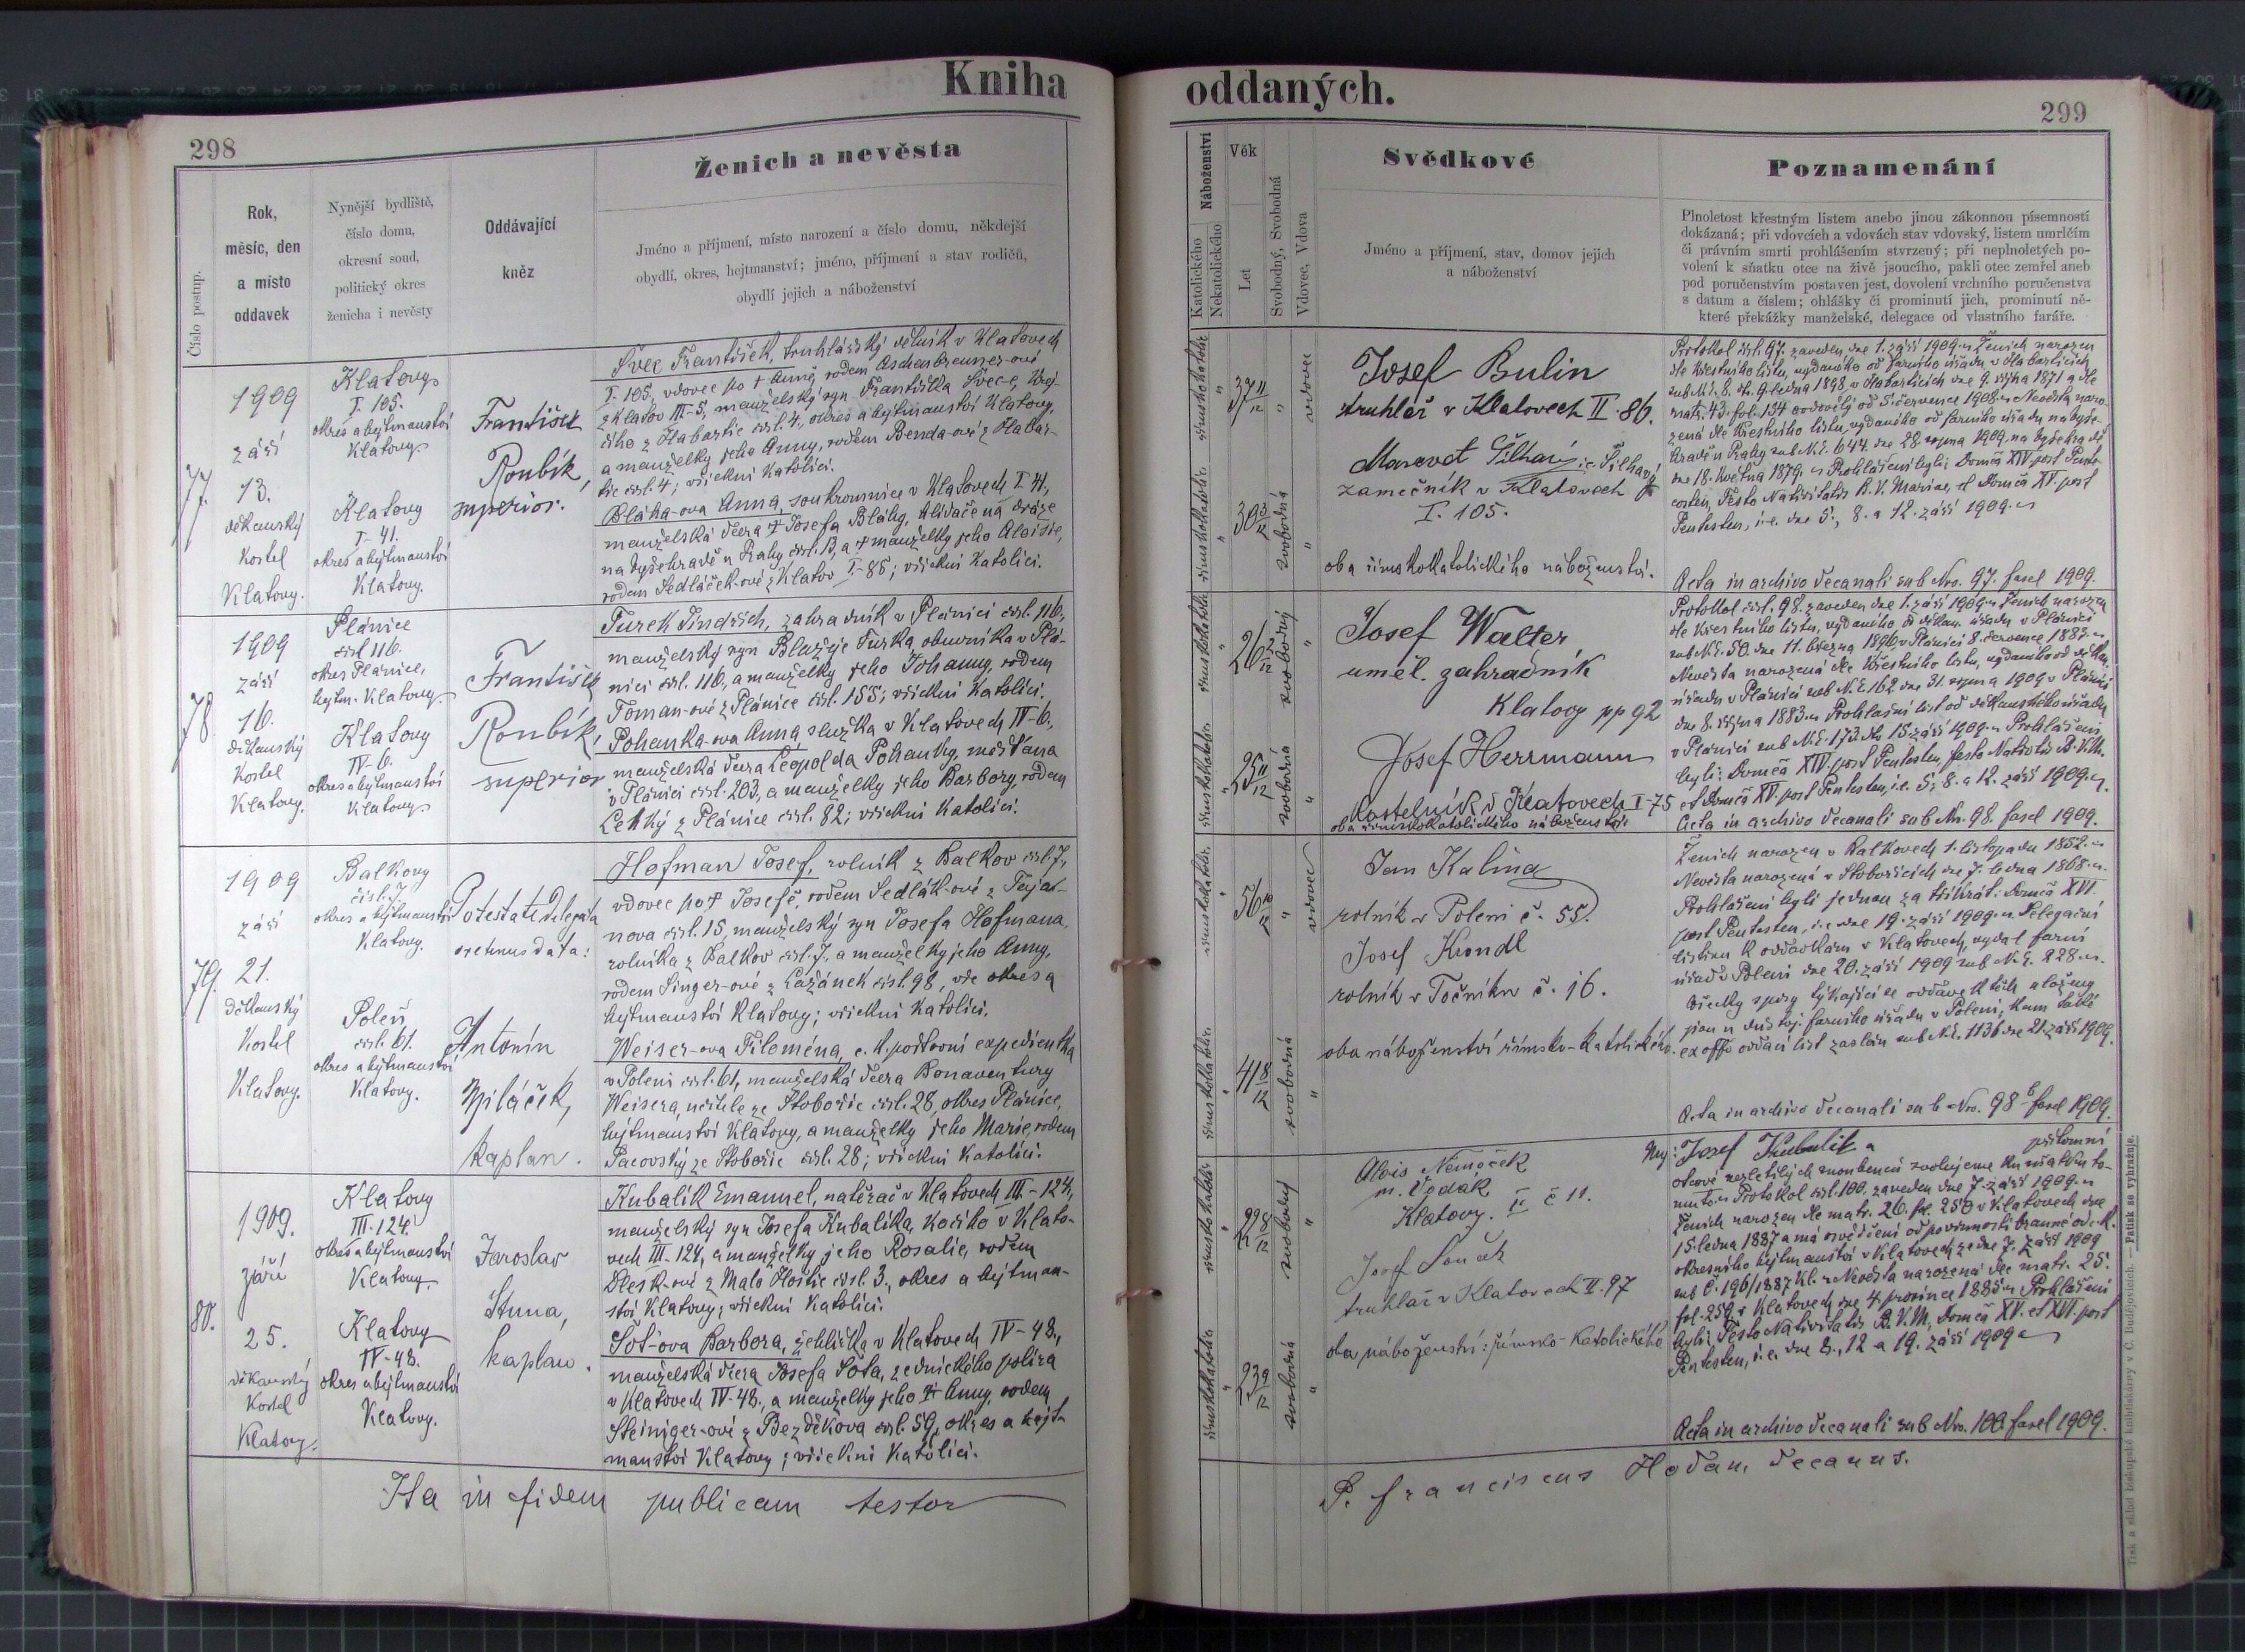 Kniha
oddaných.
298
299
Číslo postup.
Rok,
měsíc, den
a místo
oddavek
Nynější bydliště,
číslo domu,
okresní soud,
politický okres
ženicha i nevěsty
Oddávající
kněz
Ženich a nevěsta
Jméno a příjmení, místo narození a číslo domu, někdejší
obydlí, okres, hejtmanství; jméno, příjmení a stav rodičů,
obydlí jejich a náboženství
Náboženství
Katolického
Nekatolického
Věk
Let
Svobodný, Svobodná
Vdovec, Vdova
Svědkové
Jméno a příjmení, stav, domov jejich
a náboženství
Poznamenání
Plnoletost křestným listem anebo jinou zákonnou písemností
dokázaná; při vdovcích a vdovách stav vdovský, listem umrlčím
či právním smrti prohlášením stvrzený; při neplnoletých po-
volení k sňatku otce na živě jsoucího, pakli otec zemřel aneb
pod poručenstvím postaven jest, dovolení vrchního poručenstva
s datum a číslem; ohlášky či prominutí jich, prominutí ně-
které překážky manželské, delegace od vlastního faráře.
77.
1909
září
13.
děkanský
kostel
Klatovy.
Klatovy
I. 105.
okres a hejtmanství
Klatovy.
Klatovy
I-41.
okres a hejtmanství
Klatovy.
František
Roubík,
superior.
Švec František, truhlářský dělník v Klatovech
I. 105, vdovec po † Anně, rodem Aschenbrenner-ové
z Klatov III-5, manželský syn Františka Švece, krej-
čího z Habartic čísl. 4., okres a hejtmanství Klatovy,
a manželky jeho Anny, rodem Benda-ové z Habar-
tic čísl. 4; všickni katolíci.
Bláha-ova Anna, soukromnice v Klatovech I. 41,
manželská dcera † Josefa Bláhy, hlídače na dráze
na Vyšehradě u Prahy čísl. 13, a † manželky jeho Aloisie,
rodem Sedláček-ové z Klatov I-85; všickni katolíci.
římskokatolic.
37 11/12
vdovec
římskokatolic.
30 3/12
svobodná
Josef Bulin
truhlář v Klatovech II. 86.
Marovat Šilhavý i.e. Šilhavý
zamečník v Klatovech
I. 105.
oba římskokatolického náboženství.
Protokol čísl. 97. zaveden dne 1. září 1909. Ženich narozen
dle křestního listu, vydaného od farního úřadu v Habarticích
sub N.E. 8. dto. 9. ledna 1898, v Habarticích dne 9. října 1871 a dle
matr. 43. fol. 134 ovdověly od 5. července 1908. Nevěsta naro-
zená dle křestního listu, vydaného od farního úřadu na Vyše-
hradě u Prahy sub N.E. 644 dne 28. srpna 1909, na Vyšehradě
dne 18. května 1879. Prohlášení byli: Domca XIV. post Pente-
costen, Festo Nativitatis B. V. Mariae, et Domca XV. post
Pentecosten, i.e. dne 5., 8. a 12. září 1909.
Acta in archivo decanali sub Nro. 97. fascl 1909.
78.
1909
září
16.
děkanský
kostel
Klatovy.
Plánice
čísl. 116.
okres Plánice,
hejtm. Klatovy.
Klatovy
IV-6.
okres a hejtmanství
Klatovy.
František
Roubík,
superior
Turek Jindřich, zahradník v Plánici čísl. 116.,
manželský syn Blažeje Turka, obuvníka v Plá-
nici čísl. 116, a manželky jeho Johanny, rodem
Toman-ové z Plánice čísl. 155; všickni katolíci.
Pohanka-ova Anna, služka v Klatovech IV-6.,
manželská dcera Leopolda Pohanky, měšťana
v Plánici čísl. 203, a manželky jeho Barbory, rodem
Lehký z Plánice čísl. 82; všickni katolíci.
římskokatolic.
26 2/12
svobodný
římskokatolic.
25 11/12
svobodná
Josef Walter
uměl. zahradník
Klatovy pp 92
Josef Herrmann
Kostelník v Klatovech I-75
oba římskokatolického náboženství
Protokol čísl. 98. zaveden dne 1. září 1909. Ženich narozen
dle křestního listu, vydaného od děkan. úřadu v Plánici
sub N.E. 50. dne 11. března 1896 v Plánici 8. července 1883.
Nevěsta narozená dle křestního listu, vydaného od děkan.
úřadu v Plánici sub N.E. 162 dne 31. srpna 1909 v Plánici
dne 8. října 1883. Prohlašní list od děkanského úřadu
v Plánici sub N.E. 173. dto 15. září 1909. Prohlášeni
byli: Domca XIV. post Pentecosten, festo Nativitatis B.V.M.
et Domca XV. post Pentecosten, i.e. 5., 8. a 12. září 1909.
Acta in archivo decanali sub Nro. 98. fascl 1909.
79.
1909
září
21.
Děkanský
kostel
Klatovy.
Balkovy
čísl. 7.
okres a hejtmanství
Klatovy.
Poleň
čísl. 61.
okres a hejtmanství
Klatovy.
Potestate delegata
oretenus data:
Antonín
Špiláček,
kaplan.
Hofman Josef, rolník z Balkov čísl. 7.,
vdovec po † Josefě, rodem Sedlák-ové z
nova čísl. 15, manželský syn Josefa Hofmana,
rolníka z Balkov čísl. 7., a manželky jeho Anny,
rodem Singer-ové z Lažánek čísl. 98, vše okres a
hejtmanství Klatovy; všickni katolíci.
Weiser-ova Filoména, c. k. poštovní expedientka
v Poleni čísl. 61, manželská dcera Bonaventury
Weisera, učitele ze Stobořic čísl. 28, okres Plánice,
hejtmanství Klatovy, a manželky jeho Marie, rodem
Pacovský ze Stobořic čísl. 28; všickni katolíci.
římskokatolic.
56 10/12
vdovec
římskokatolic.
41 8/12
svobodná
Jan Kalina
rolník v Poleni č. 55.
Josef Krondl
rolník v Točníku č. 16.
oba náboženství římsko-katolického.
Ženich narozen v Balkovech 1. listopadu 1852.
Nevěsta narozená v Stobořicích dne 7. ledna 1868.
Prohlášeni byli jednou za třikrát: Domca XVI.
post Pentecosten, i.e. dne 19. září 1909. Delegační
listinu k oddavkám v Klatovech, vydal farní
úřad v Poleni dne 20. září 1909 sub N.E. 828.
Všecky spisy týkající se oddavek těch uloženy
jsou u důstoj. farního úřadu v Poleni, kam také
ex offo oddací list zaslán sub N.E. 1136 dne 21. září 1909.
Acta in archivo decanali sub Nro. 98 b fascl 1909.
80.
1909.
září
25.
děkanský
kostel
Klatovy.
Klatovy
III. 124.
okres a hejtmanství
Klatovy
Klatovy
IV-48.
okres a hejtmanství
Klatovy.
Jaroslav
Štuna,
kaplan.
Kubalík Emanuel, natěrač v Klatovech III.-124,
manželský syn Josefa Kubalíka, kočího v Klato-
vech III. 124, a manželky jeho Rosalie, rodem
Blesk-ové z Malo Hoštic čísl. 3., okres a hejtman-
ství Klatovy; všickni katolíci.
Šot-ova Barbora, žehlířka v Klatovech IV-48.,
manželská dcera Josefa Šota, zednického políra
v Klatovech IV-48., a manželky jeho † Anny, rodem
Steiniger-ové z Bezděkova čísl. 59, okres a hejt-
manství Klatovy; všickni katolíci.
římskokatolic.
22 8/12
svobodný
římskokatolic.
23 9/12
svobodná
Alois Nemeček
m.
Klatovy. IV č 11.
Josef Souček
truhlář v Klatovech II. 97
oba náboženství: římsko-katolického
My: Josef Kubalík a přítomní
otcové nezletilých snoubenců svolujeme ku sňatku to-
muto. Protokol čísl. 100. zaveden dne 7. září 1909.
Ženich narozen dle matr. 26. fol. 250 v Klatovech dne
15. ledna 1887 a má osvědčení od povinnosti branné od c.k.
okresního hejtmanství v Klatovech ze dne 7. září 1909
sub Č. 196/1887 Kl. Nevěsta narozená dle matr. 25.
fol. 259 v Klatovech dne 4. prosince 1885. Prohlášeni
byli: Festo Nativitatis B.V.M., Domca XV. et XVI. post
Pentecosten, i.e. dne 8., 12 a 19. září 1909
Acta in archivo decanali sub Nro. 100 fascl 1909.
Ita in fidem publicam testor
P. Franciscus Hodan, decanus.
Tisk a sklad biskupské knihtiskárny v Č. Budějovicích. — Patisk se vyhražuje.